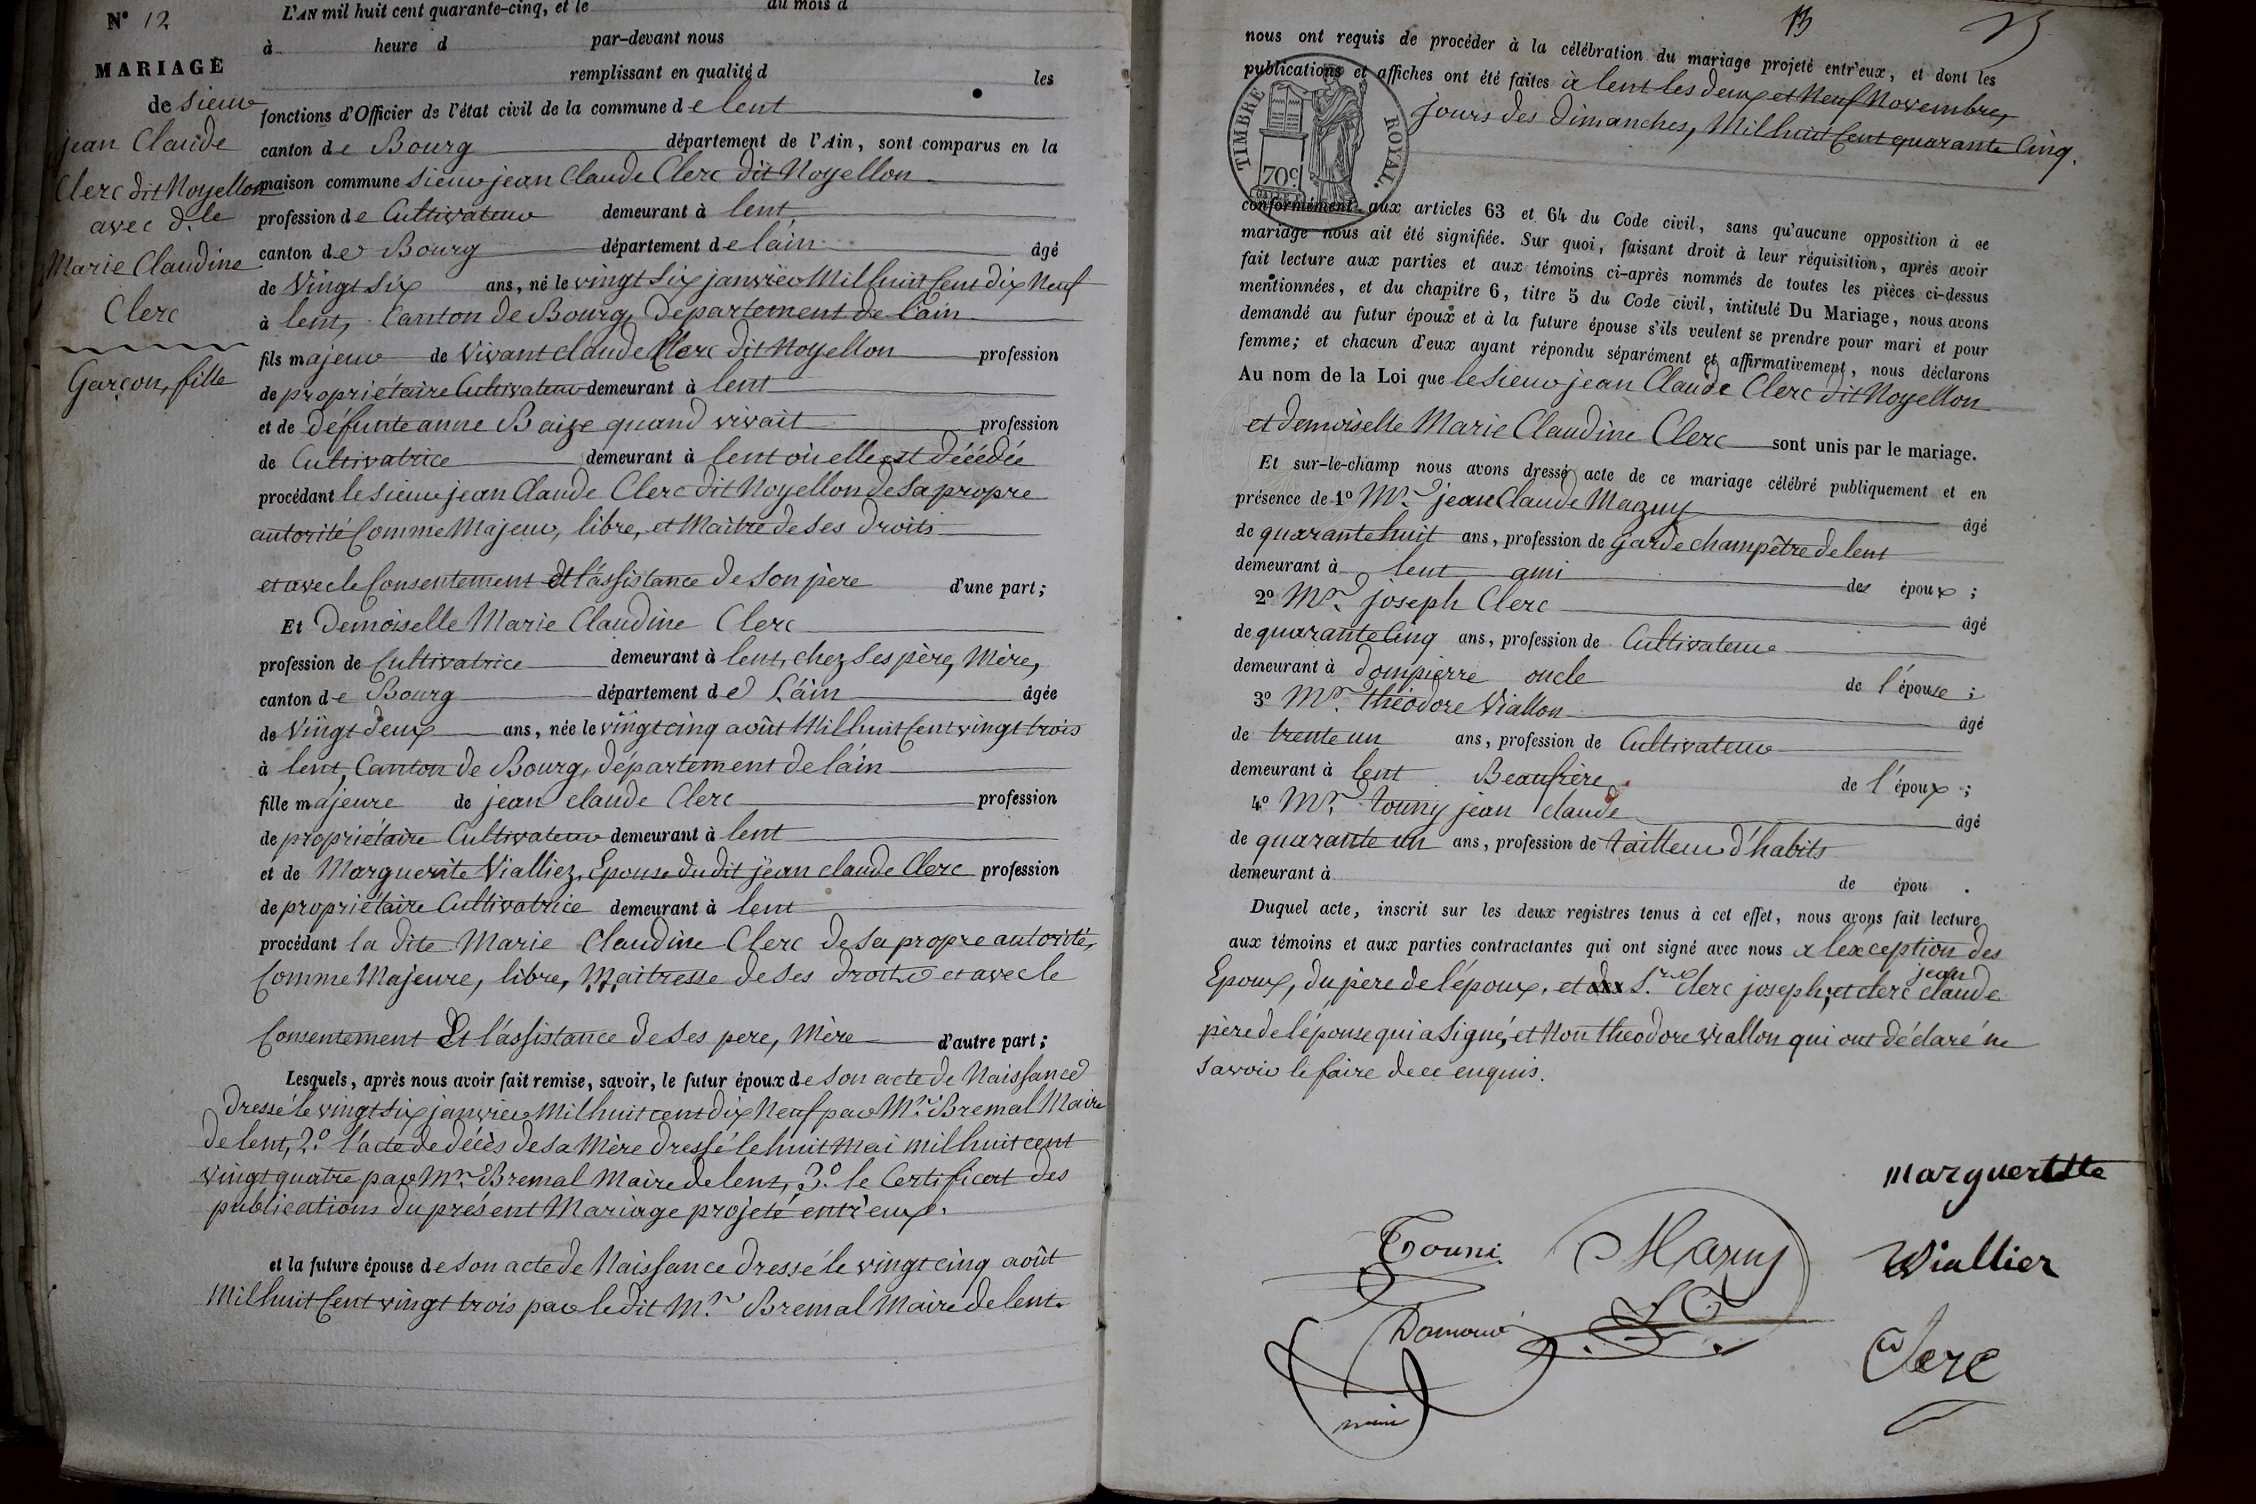 N° 12
MARIAGE
de Sieur
jean Claude
Clerc dit Noyellon
avec d.le
Marie Claudine
Clerc
Garçon, fille
L'AN mil huit cent quarante-cinq, et le du mois d
à heure d par-devant nous
remplissant en qualité d les
fonctions d'Officier de l'état civil de la commune de lent
canton de Bourg département de l'Ain, sont comparus en la
maison commune Sieur jean Claude Clerc dit Noyellon
profession de Cultivateur demeurant à lent
canton de Bourg département de l'ain âgé
de Vingt Six ans, né le vingt Six janvier Mil huit Cent dix Neuf
à lent, Canton de Bourg, Département de l'ain
fils majeur de Vivant claude Clerc dit Noyellon profession
de propriétaire Cultivateur demeurant à lent
et de défunte anne Baize quand vivait profession
de Cultivatrice demeurant à lent où elle est décédée
procédant le Sieur jean Claude Clerc dit Noyellon de Sa propre
autorité Comme Majeur, libre, et Maitre de Ses droits
et avec le Consentement et l'assistance de Son père d'une part;
Et Demoiselle Marie Claudine Clerc
profession de Cultivatrice demeurant à lent, chez Ses père, Mère,
canton de Bourg département de L'ain âgée
de Vingt deux ans, née le vingt cinq août Mil huit Cent vingt trois
à lent, Canton de Bourg, département de l'ain
fille majeure de jean claude Clerc profession
de propriétaire Cultivateur demeurant à lent
et de Marguerite Vialliez, Epouse du dit jean claude Clerc profession
de propriétaire Cultivatrice demeurant à lent
procédant la dite Marie Claudine Clerc de Sa propre autorité,
Comme Majeure, libre, Maitresse de Ses droits et avec le
Consentement Et l'assistance de Ses pere, Mère d'autre part;
Lesquels, après nous avoir fait remise, savoir, le futur époux de Son acte de Naissance
dressé le vingt Six janvier Mil huit cent dix Neuf par Mr. Bremal Maire
de lent, 2.° l'acte de décès de Sa Mère dressé le huit Mai mil huit cent
vingt quatre par Mr. Bremal Maire de lent, 3.° le Certificat des
publications du présent Mariage projeté entr'eux.
et la future épouse de Son acte de Naissance dressé le vingt cinq août
Mil huit Cent vingt trois par le dit Mr. Bremal Maire de lent.
13
nous ont requis de procéder à la célébration du mariage projeté entr'eux, et dont les
publications et affiches ont été faites à lent les deux et Neuf Novembre,
jours des Dimanches, Mil huit Cent quarante Cinq.
TIMBRE ROYAL.
70c
conformément aux articles 63 et 64 du Code civil, sans qu'aucune opposition à ce
mariage nous ait été signifiée. Sur quoi, faisant droit à leur réquisition, après avoir
fait lecture aux parties et aux témoins ci-après nommés de toutes les pièces ci-dessus
mentionnées, et du chapitre 6, titre 5 du Code civil, intitulé Du Mariage, nous avons
demandé au futur époux et à la future épouse s'ils veulent se prendre pour mari et pour
femme; et chacun d'eux ayant répondu séparément et affirmativement, nous déclarons
Au nom de la Loi que le Sieur jean Claude Clerc dit Noyellon
et demoiselle Marie Claudine Clerc sont unis par le mariage.
Et sur-le-champ nous avons dressé acte de ce mariage célébré publiquement et en
présence de 1° Mr. jean Claude Mazuy âgé
de quarante huit ans, profession de Garde champêtre de lent
demeurant à lent ami des époux;
2° Mr. joseph Clerc âgé
de quarante Cinq ans, profession de Cultivateur
demeurant à dompierre oncle de l'épouse;
3° Mr. théodore Viallon âgé
de trente un ans, profession de Cultivateur
demeurant à lent Beaufrère de l'époux;
4° Mr. touny jean claude âgé
de quarante un ans, profession de tailleur d'habits
demeurant à de épou .
Duquel acte, inscrit sur les deux registres tenus à cet effet, nous avons fait lecture
aux témoins et aux parties contractantes qui ont signé avec nous a l'exception des
Epoux, du père de l'époux, et S.r Clerc joseph, et clerc jean claude
père de l'épouse qui a Signé, et Non theodore viallon qui ont déclaré ne
savoir le faire de ce enquis.
margueritte
Viallier
Touni Mazuy
Clerc
maire